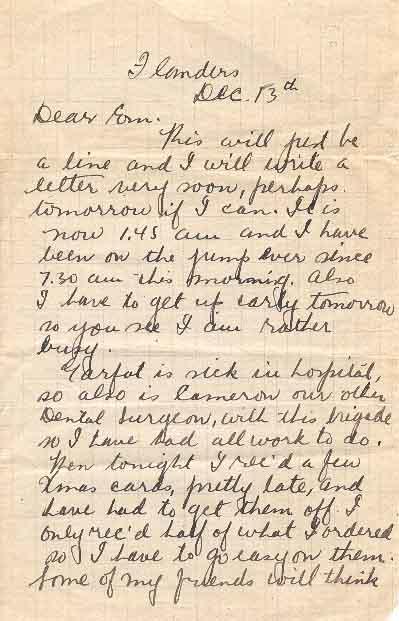 Flanders
Dec. 13th
Dear Ern.
This will just be
a line and I will write a
letter very soon, perhaps
tomorrow if I can. It is
now 1.45 am and I have
been on the jump ever since
7.30 am this morning. Also
I have to get up early tomorrow
so you see I am rather
busy.
is sick in hospital,
so also is Cameron our other
Dental Surgeon, with this brigade
so I have had all work to do.
Then tonight I rec'd a few
Xmas cards, pretty late, and
have had to get them off. I
only rec'd half of what I ordered
so I have to go easy on them.
Some of my friends will think